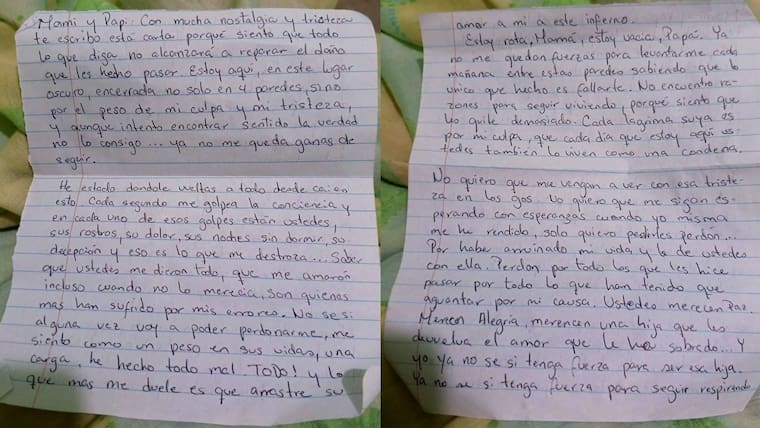 Mami y Papi: Con mucha nostalgia y tristeza
te escribo está carta porqué siento que todo
lo que diga no alcanzará a reparar el daño
que les hecho pasar. Estoy aquí, en este lugar
oscuro, encerrada no solo en 4 paredes, sino
por el peso de mi culpa y mi tristeza,
y aunque intento encontrar sentido la verdad
no lo consigo... ya no me queda ganas de
seguir.
He estado dondole vueltas a todo desde cai en
esto Cada segundo me golpea la conciencia y
en cada uno de esos golpes están ustedes,
sus rostros, su dolor, sus noches sin dormir, su
decepción y eso es lo que me destroza... Saber
que ustedes me dieron todo, que me amarón
incluso cuando no lo merecia, son quienes
mas han sufrido por mis errores. No se si
alguna vez voy a poder perdonarme, me
siento como un peso en sus vidas, una
carga, he hecho todo mal TODO! y lo
que mas me duele es que arrastre su
amor a mi a este infierno.
Estoy rota, Mamá, estoy vacia, Papá. Ya
no me quedan fuerzas para levantarme cada
mañana entre estas paredes sabiendo que lo
unico que hecho es fallarte. No encuentro ra-
zones para seguir viviendo, porqué siento que
yo quite demasiado. Cada lagrima suya es
por mi culpa, que cada dia que estoy aqui us-
tedes también lo viven como una condena.
No quiero que me vengan a ver con esa triste-
za en los ojos. No quiero que me sigan es-
perando con esperanzas cuando yo misma
me he rendido, solo quiero pedirles perdón...
Por haber arruinado mi vida y la de ustedes
con ella. Perdon por todo los que les hice
pasar por todo lo que han tenido que
aguantar por mi causa. Ustedes merecen Paz.
Merecen Alegria, merencen una hija que les
devuelva el amor que le ha sobrado... Y
yo ya no se si tenga fuerza para ser esa hija.
Ya no se si tenga fuerza para seguir respirando